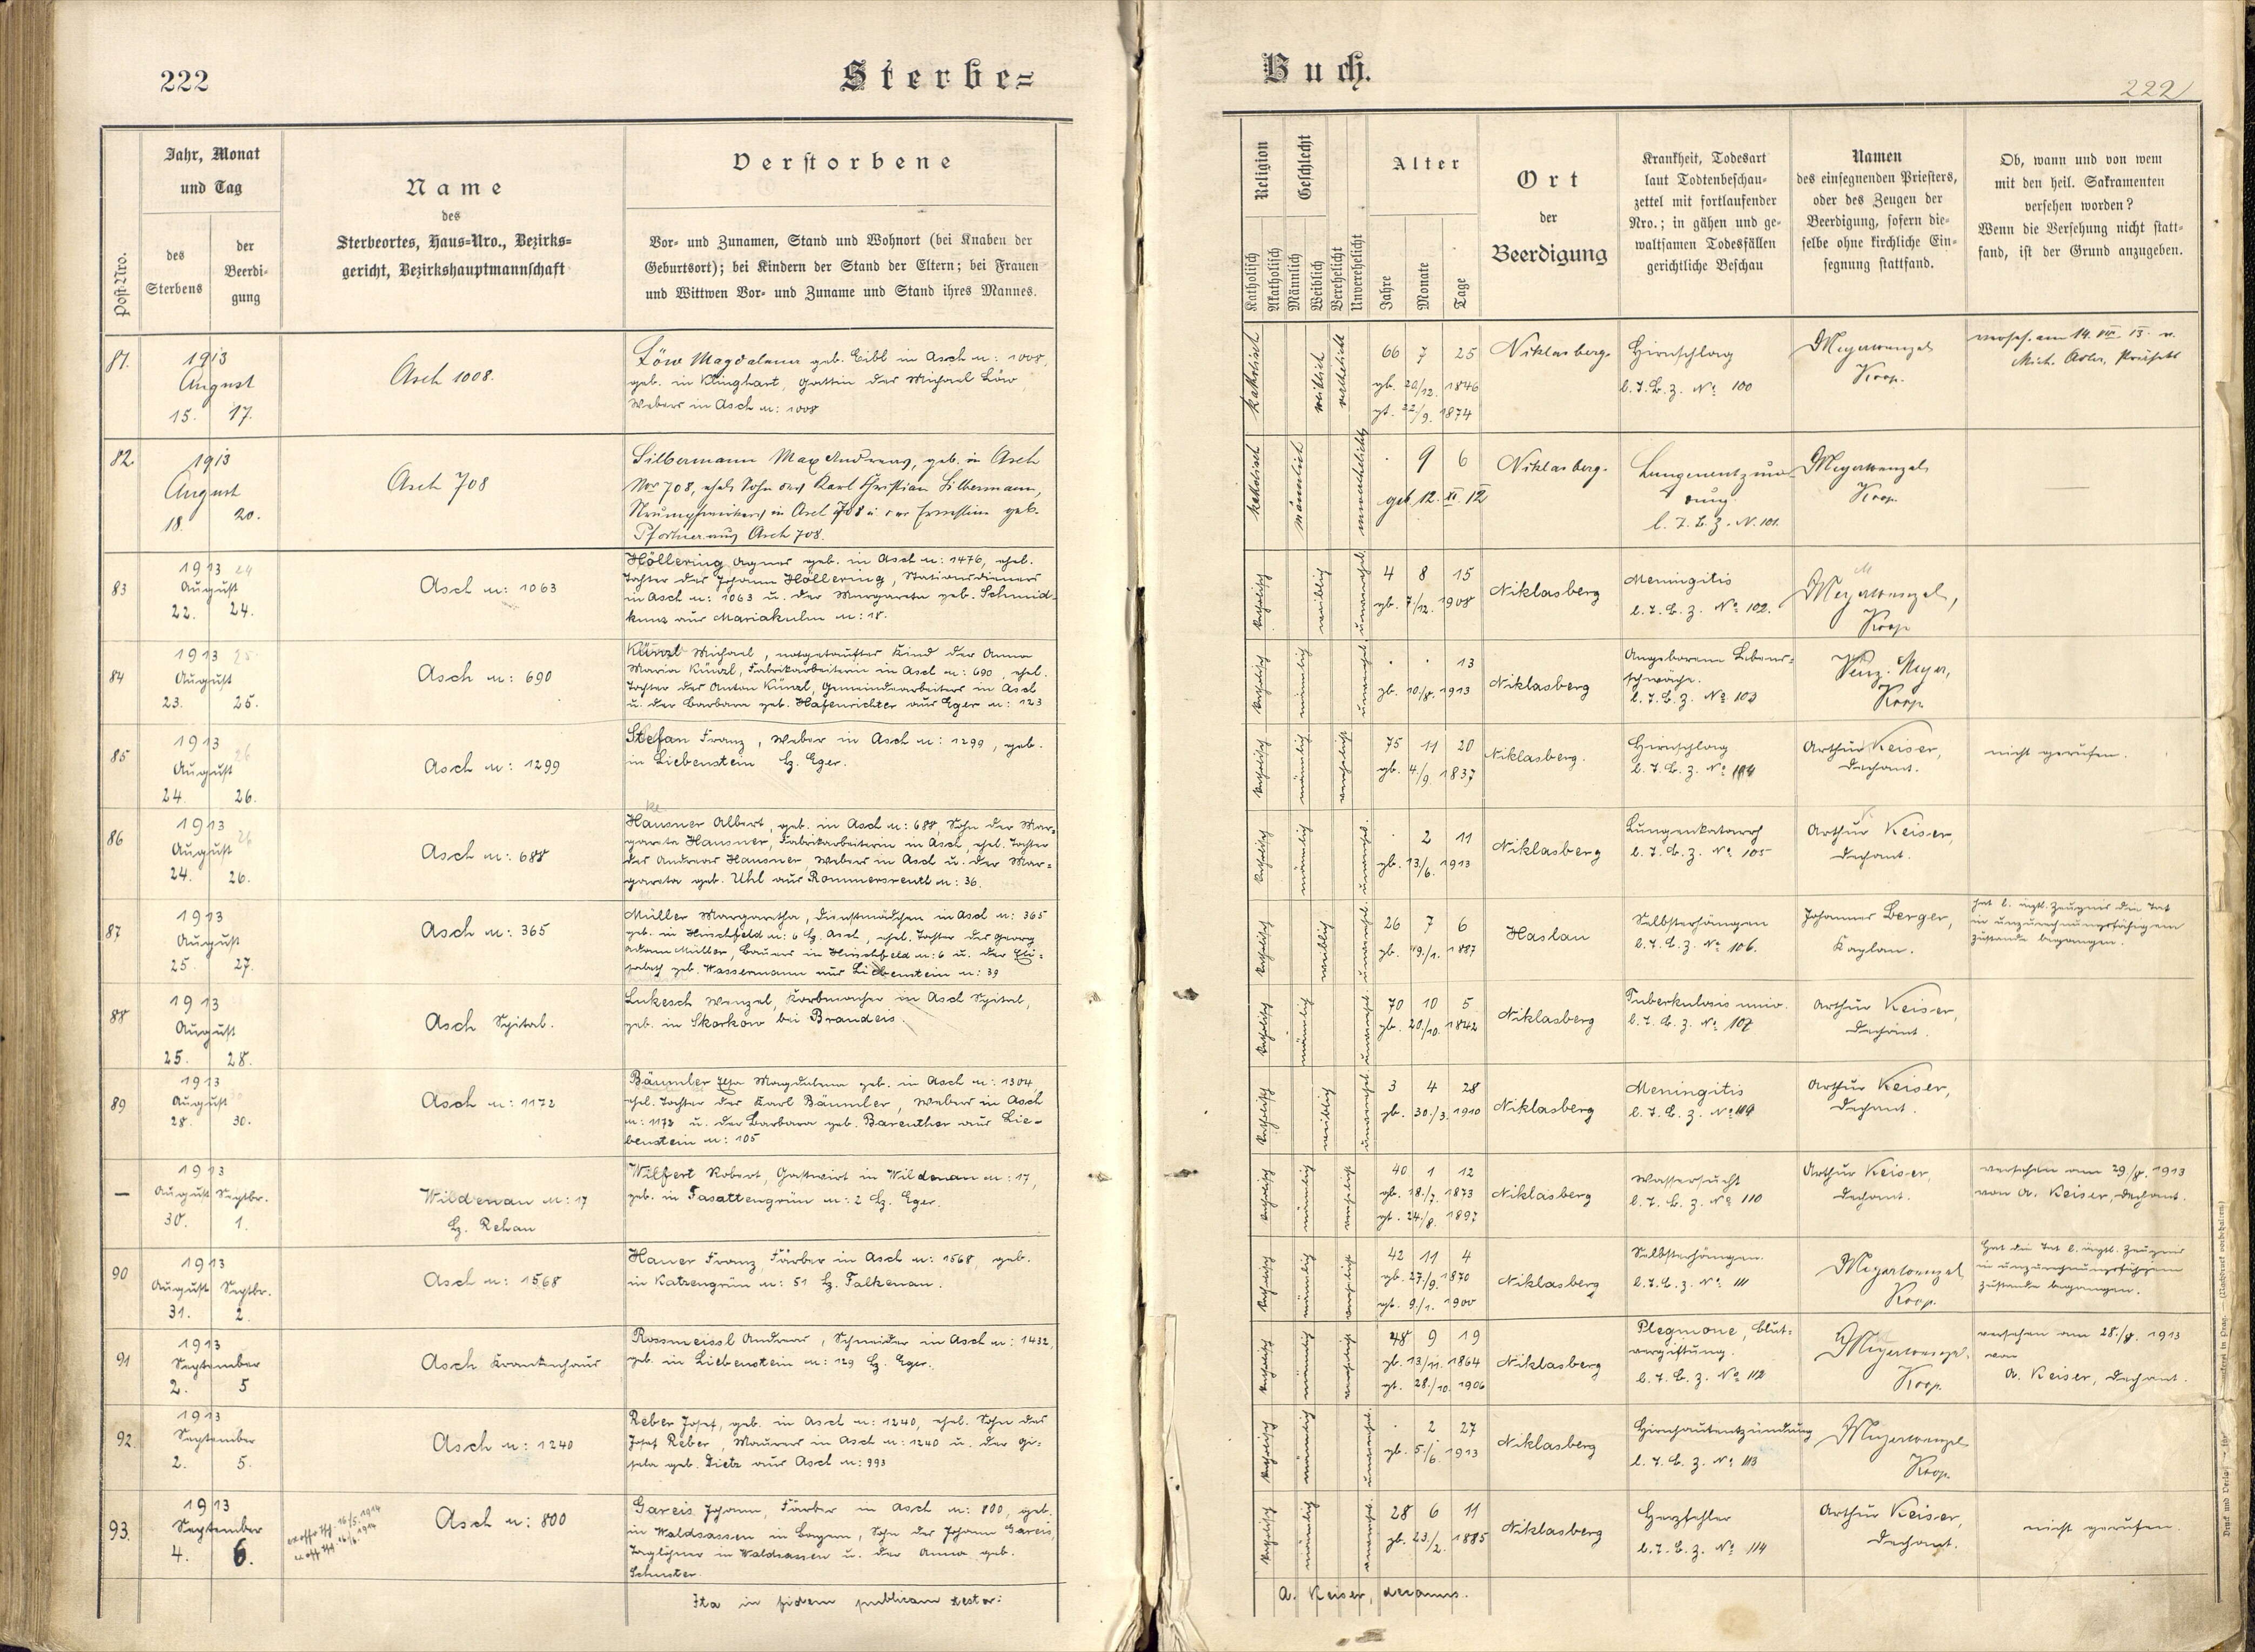 222
Sterbe=
Jahr, Monat
und Tag
Post-Nro.
des
Sterbens
der
Beerdi-
gung
Name
des
Sterbeortes, Haus-Nro., Bezirks-
gericht, Bezirkshauptmannschaft
Verstorbene
Vor- und Zunamen, Stand und Wohnort (bei Knaben der
Geburtsort); bei Kindern der Stand der Eltern; bei Frauen
und Wittwen Vor- und Zuname und Stand ihres Mannes.
81.
1913
August
15. 17.
Asch 1008.
Löw Magdalena geb. Eibl in Asch n: 1008,
geb. in Klinghart, Gattin des Michael Löw
Webers in Asch n: 1008
82.
1913
August
18. 20.
Asch 708
Silbermann Max Andreas, geb. in Asch
Nro 708, ehel. Sohn des Karl Christian Silbermann,
Strumpfwirkers in Asch 708 u. der Ernestine geb.
Pfortner aus Asch 708.
83
1913 24
August
22. 24.
Asch n: 1063
Höllering Agnes geb. in Asch n: 1476, ehel.
Tochter des Johann Höllering, Stationsdieners
in Asch n: 1063 u. der Margareta geb. Schmid-
kunz aus Mariakulm n: 18.
84
1913 25
August
23. 25.
Asch n: 690
Künzl Michael, notgetauftes Kind der Anna
Maria Künzl, Fabrikarbeiterin in Asch n: 690, ehel.
Tochter des Anton Künzl, Gemeindearbeiters in Asch
u. der Barbara geb. Hafenrichter aus Eger n: 123
85
1913
August 26
24. 26.
Asch n: 1299
Stefan Franz, Weber in Asch n: 1299, geb.
in Liebenstein Bz. Eger.
86
1913
August 26
24. 26.
Asch n: 688
Hausner Albert, geb. in Asch n: 688, Sohn der Mar=
gareta Hausner, Fabrikarbeiterin in Asch, ehel. Tochter
des Andreas Hausner, Webers in Asch u. der Mar=
gareta geb. Uhl aus Rommersreuth n: 36.
87
1913
August
25. 27.
Asch n: 365
Müller Margaretha, Dienstmädchen in Asch n: 365
geb. in Hirschfeld n: 6 Bz. Asch, ehel. Tochter des Georg
Adam Müller, Bauers in Hirschfeld n: 6 u. der Eli=
sabeth geb. Wassermann aus Liebenstein n: 39
88
1913
August
25. 28.
Asch Spital.
Lukesch Wenzel, Korbmacher in Asch Spital,
geb. in Skorkow bei Brandeis.
89
1913
August
28. 30.
Asch n: 1172
Bäumler Elsa Magdalena geb. in Asch n: 1304,
ehel. Tochter des Karl Bäumler, Webers in Asch
n: 1172 u. der Barbara geb. Bareuther aus Lie-
benstein n: 105
—
1913
August Septbr.
30. 1.
Wildenau n: 17
Bz. Rehau
Wilfert Robert, Gastwirt in Wildenau n: 17,
geb. in Fasattengrün n: 2 Bz. Eger.
90
1913
August Septbr.
31. 2.
Asch n: 1568
Hauer Franz, Färber in Asch n: 1568, geb.
in Katzengrün n: 51 Bz. Falkenau.
91
1913
September
2. 5
Asch Krankenhaus
Rossmeissl Andreas, Schneider in Asch n: 1432,
geb. in Liebenstein n: 129 Bz. Eger.
92.
1913
September
2. 5.
Asch n: 1240
Reber Josef, geb. in Asch n: 1240, ehel. Sohn des
Josef Reber, Maurers in Asch n: 1240 u. der Gi=
sela geb. Dietz aus Asch n: 993
93.
1913
September
4. 6.
Asch n: 800
Gareis Johann, Färber in Asch n: 800, geb.
in Waldsassen in Bayern, Sohn des Johann Gareis,
Taglöhner in Waldsassen u. der Anna geb.
Schuster.
Ita in fidem publicam testor:
Buch.
222
Religion
Geschlecht
Katholisch
Akatholisch
Männlich
Weiblich
Verehelicht
Unverehelicht
Alter
Jahre
Monate
Tage
Ort
der
Beerdigung
Krankheit, Todesart
laut Todtenbeschau-
zettel mit fortlaufender
Nro.; in gähen und ge-
waltsamen Todesfällen
gerichtliche Beschau
Namen
des einsegnenden Priesters,
oder des Zeugen der
Beerdigung, sofern die-
selbe ohne kirchliche Ein-
segnung stattfand.
Ob, wann und von wem
mit den heil. Sakramenten
versehen worden?
Wenn die Versehung nicht statt-
fand, ist der Grund anzugeben.
katholisch weiblich verehelicht
66 7 25
gb. 20/12. 1846
gt. 22/9. 1874
Niklasberg.
Hirnschlag
l. T. B. Z. No: 100
Meyer Wenzel
Koop.
verseh. am 14. VIII. 13 v.
Mich. Adler, Präfekt
katholisch männlich unverehelicht
. 9 6
geb. 12. XI. 12
Niklasberg.
Lungenentzün-
dung
l. T. B. Z. N. 101.
Meyer Wenzel
Koop.
—
katholisch weiblich unverehel.
4 8 15
gb. 7/12. 1908
Niklasberg
Meningitis
l. T. B. Z. No: 102.
Meyer Wenzel,
Koop
katholisch männlich unverehel.
. . 13
gb. 10/8. 1913
Niklasberg
Angeborene Lebens=
schwäche.
l. T. B. Z. No 103
Wenz. Meyer,
Koop
katholisch männlich verehelicht
75 11 20
gb. 4/9. 1837
Niklasberg.
Hirnschlag
l. T. B. Z. No: 104
Arthur Keiser,
Dechant.
nicht gerufen.
katholisch männlich unverehel.
. 2 11
gb. 13/6. 1913
Niklasberg
Lungenkatarrh
l. T. B. Z. No: 105
Arthur Keiser,
Dechant.
katholisch weiblich unverehel.
26 7 6
gb. 19/1. 1887
Haslau
Selbsterhängen
l. T. B. Z. No: 106.
Johannes Berger,
Kaplan.
hat l. ärztl. Zeugnis die Tat
in unzurechnungsfähigem
Zustande begangen.
katholisch männlich unverehel.
70 10 5
gb. 20/10. 1842
Niklasberg
Tuberkulosis univ.
l. T. B. Z. No: 107
Arthur Keiser,
Dechant.
katholisch weiblich unverehel.
3 4 28
gb. 30./3. 1910
Niklasberg
Meningitis
l. T. B. Z. No:
Arthur Keiser,
Dechant.
katholisch männlich verehelicht
40 1 12
gb. 18./7. 1873
gt. 24/8. 1897
Niklasberg
Wassersucht
l. T. B. Z. No 110
Arthur Keiser,
Dechant.
versehen am 29/8. 1913
von A. Keiser, Dechant.
katholisch männlich verehelicht
42 11 4
gb. 27/9. 1870
gt. 9./1. 1900
Niklasberg
Selbsterhängen.
l. T. B. Z. No: 111
Meyer Wenzel
Koop.
Hat die Tat l. ärztl. Zeugnis
in unzurechnungsfähigem
Zustande begangen.
katholisch männlich verehelicht
48 9 19
gb. 13/11. 1864
gt. 28./10. 1906
Niklasberg
Plegmone, Blut=
vergiftung.
l. T. B. Z. No: 112
Meyer Wenzel.
Koop.
versehen am 28./8. 1913
von
A. Keiser, Dechant.
katholisch männlich unverehel.
. 2 27
gb. 5./6. 1913
Niklasberg
Hirnhautentzündung
l. T. B. Z. No: 113
Meyer Wenzel
Koop.
katholisch männlich unverehel.
28 6 11
gb. 23/2. 1885
Niklasberg
Herzfehler
l. T. B. Z. No: 114
Arthur Keiser,
Dechant.
nicht gerufen.
A. Keiser, decanus.
(Nachdruck vorbehalten)